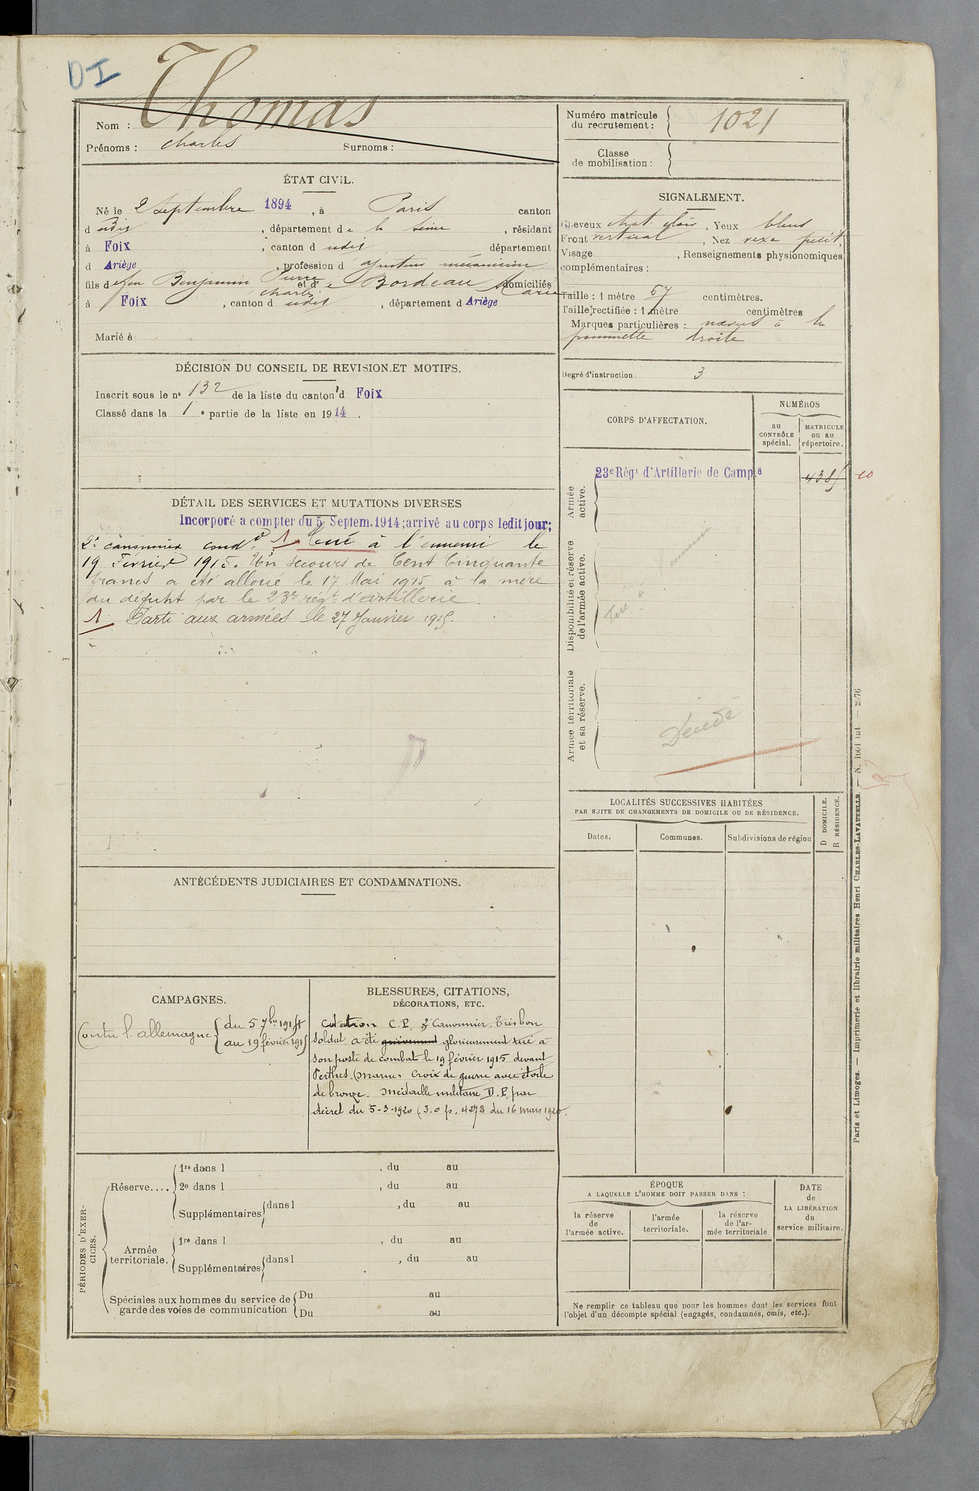 DI
Nom : Thomas
Prénoms : Charles Surnoms :
Numéro matricule du recrutement : 1021
Classe de mobilisation :
ÉTAT CIVIL.
Né le 2 Septembre 1894, à Paris canton
d udit, département de la Seine, résidant
à Foix, canton d udit département
d Ariège, profession d ajusteur mécanicien
fils de feu Benjamin Pierre Charles et de Bordeau Marie domiciliés
à Foix, canton d udit, département d Ariège
Marié à
SIGNALEMENT.
Cheveux chat. clair, Yeux bleus
Front vertical, Nez rexe petit
Visage , Renseignements physionomiques
complémentaires :
Taille : 1 mètre 67 centimètres.
Taille rectifiée : 1 mètre centimètres
Marques particulières : naevus à la
pommette droite
Degré d'instruction : 3
DÉCISION DU CONSEIL DE REVISION ET MOTIFS.
Inscrit sous le nº 132 de la liste du canton d Foix
Classé dans la 1e partie de la liste en 1914.
CORPS D'AFFECTATION.
NUMÉROS
AU CONTRÔLE spécial.
MATRICULE ou au répertoire.
Armée active.
23e Régt d'Artillerie de Campe
4385
10
Disponibilité et réserve de l'armée active.
Armée territoriale et sa réserve.
Décédé
DÉTAIL DES SERVICES ET MUTATIONS DIVERSES
Incorporé a compter du 5 Septem. 1914; arrivé au corps ledit jour;
2e canonnier condr 1 Tué à l'ennemi le
19 Février 1915. Un secours de Cent Cinquante
francs a été alloué le 17 Mai 1915 à la mère
du défunt par le 23e régt d'artillerie.
1 Parti aux armées le 27 Janvier 1915.
LOCALITÉS SUCCESSIVES HABITÉES
PAR SUITE DE CHANGEMENTS DE DOMICILE OU DE RÉSIDENCE.
Dates.
Communes.
Subdivisions de région
D DOMICILE.
R RÉSIDENCE.
ANTÉCÉDENTS JUDICIAIRES ET CONDAMNATIONS.
CAMPAGNES.
Contre l'allemagne { du 5 7bre 1914
au 19 février 1915
BLESSURES, CITATIONS,
DÉCORATIONS, ETC.
Citation C.P. 2e Canonnier. Très bon
soldat, a été grièvement glorieusement tué à
son poste de combat le 19 février 1915 devant
Perthes. (Marne) Croix de guerre avec étoile
de bronze. Médaille militaire D.P. par
décret du 5-3-1920 (J.O. p. 4273 du 16 mars 1920.
PÉRIODES D'EXERCICES.
Réserve....
1re dans l , du au
2e dans l , du au
Supplémentaires { dans l , du au
Armée territoriale.
1re dans l , du au
Supplémentaires { dans l , du au
Spéciales aux hommes du service de
garde des voies de communication
Du au
Du au
ÉPOQUE
A LAQUELLE L'HOMME DOIT PASSER DANS :
la réserve de l'armée active.
l'armée territoriale.
la réserve de l'armée territoriale
DATE de LA LIBÉRATION du service militaire.
Ne remplir ce tableau que pour les hommes dont les services font
l'objet d'un décompte spécial (engagés, condamnés, omis, etc.).
Paris et Limoges. — Imprimerie et librairie militaires Henri CHARLES-LAVAUZELLE. —